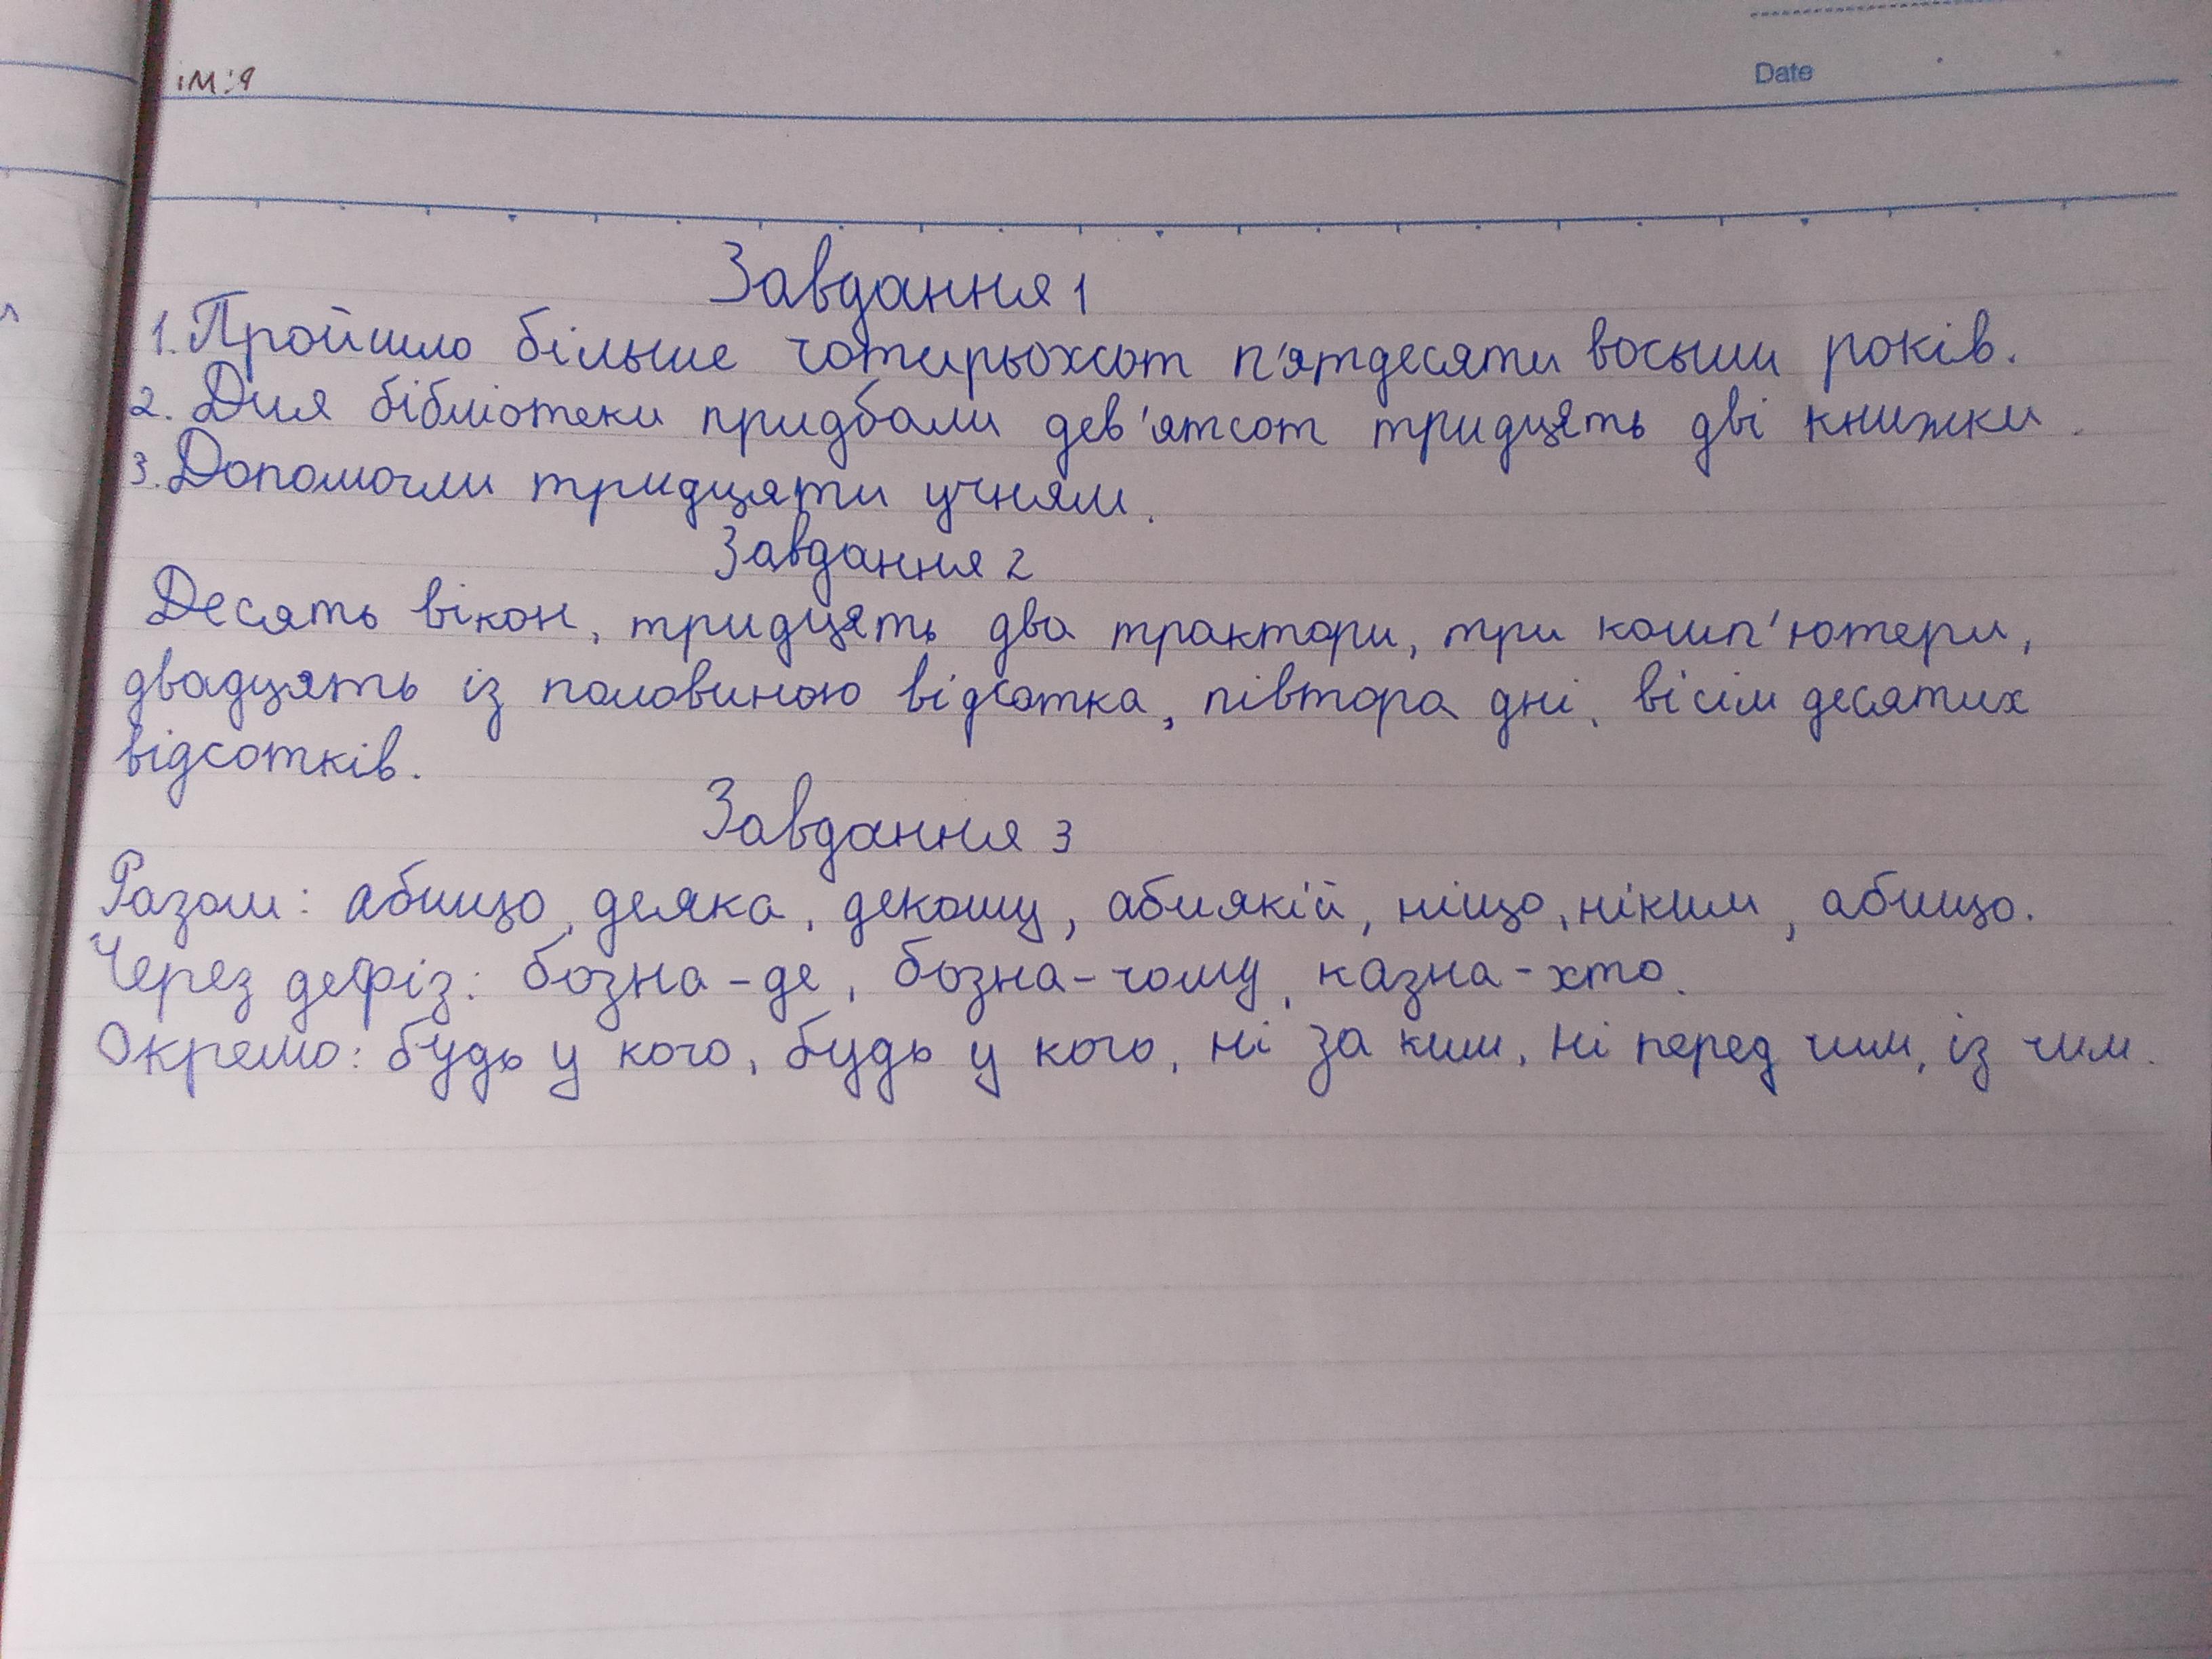 ім'я
Date
Завдання 1
1. Пройшло більше чотирьохсот п'ятдесяти восьми років.
2. Для бібліотеки придбали дев'ятсот тридцять дві книжки.
3. Допомогли тридцяти учням.
Завдання 2
Десять вікон, тридцять два трактори, три комп'ютери,
двадцять із половиною відсотка, півтора дні, вісім десятих
відсотків.
Завдання 3
Разом: абищо, деяка, декому, абиякій, ніщо, ніким, абищо.
Через дефіз: бозна-де, бозна-чому, казна-хто.
Окремо: будь у кого, будь у кого, ні за ким, ні перед чим, із чим.